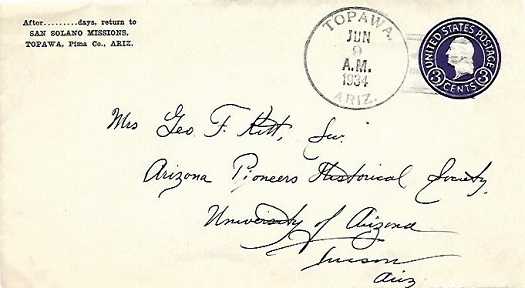 After.........days, return to
SAN SOLANO MISSIONS,
TOPAWA, Pima Co., ARIZ.
TOPAWA.
JUN
9
A.M.
1934
ARIZ.
UNITED STATES POSTAGE
3 CENTS 3
Mrs Geo. F. Kitt, Sec.
Arizona Pioneers Historical Society,
University of Arizona
Tucson
Ariz